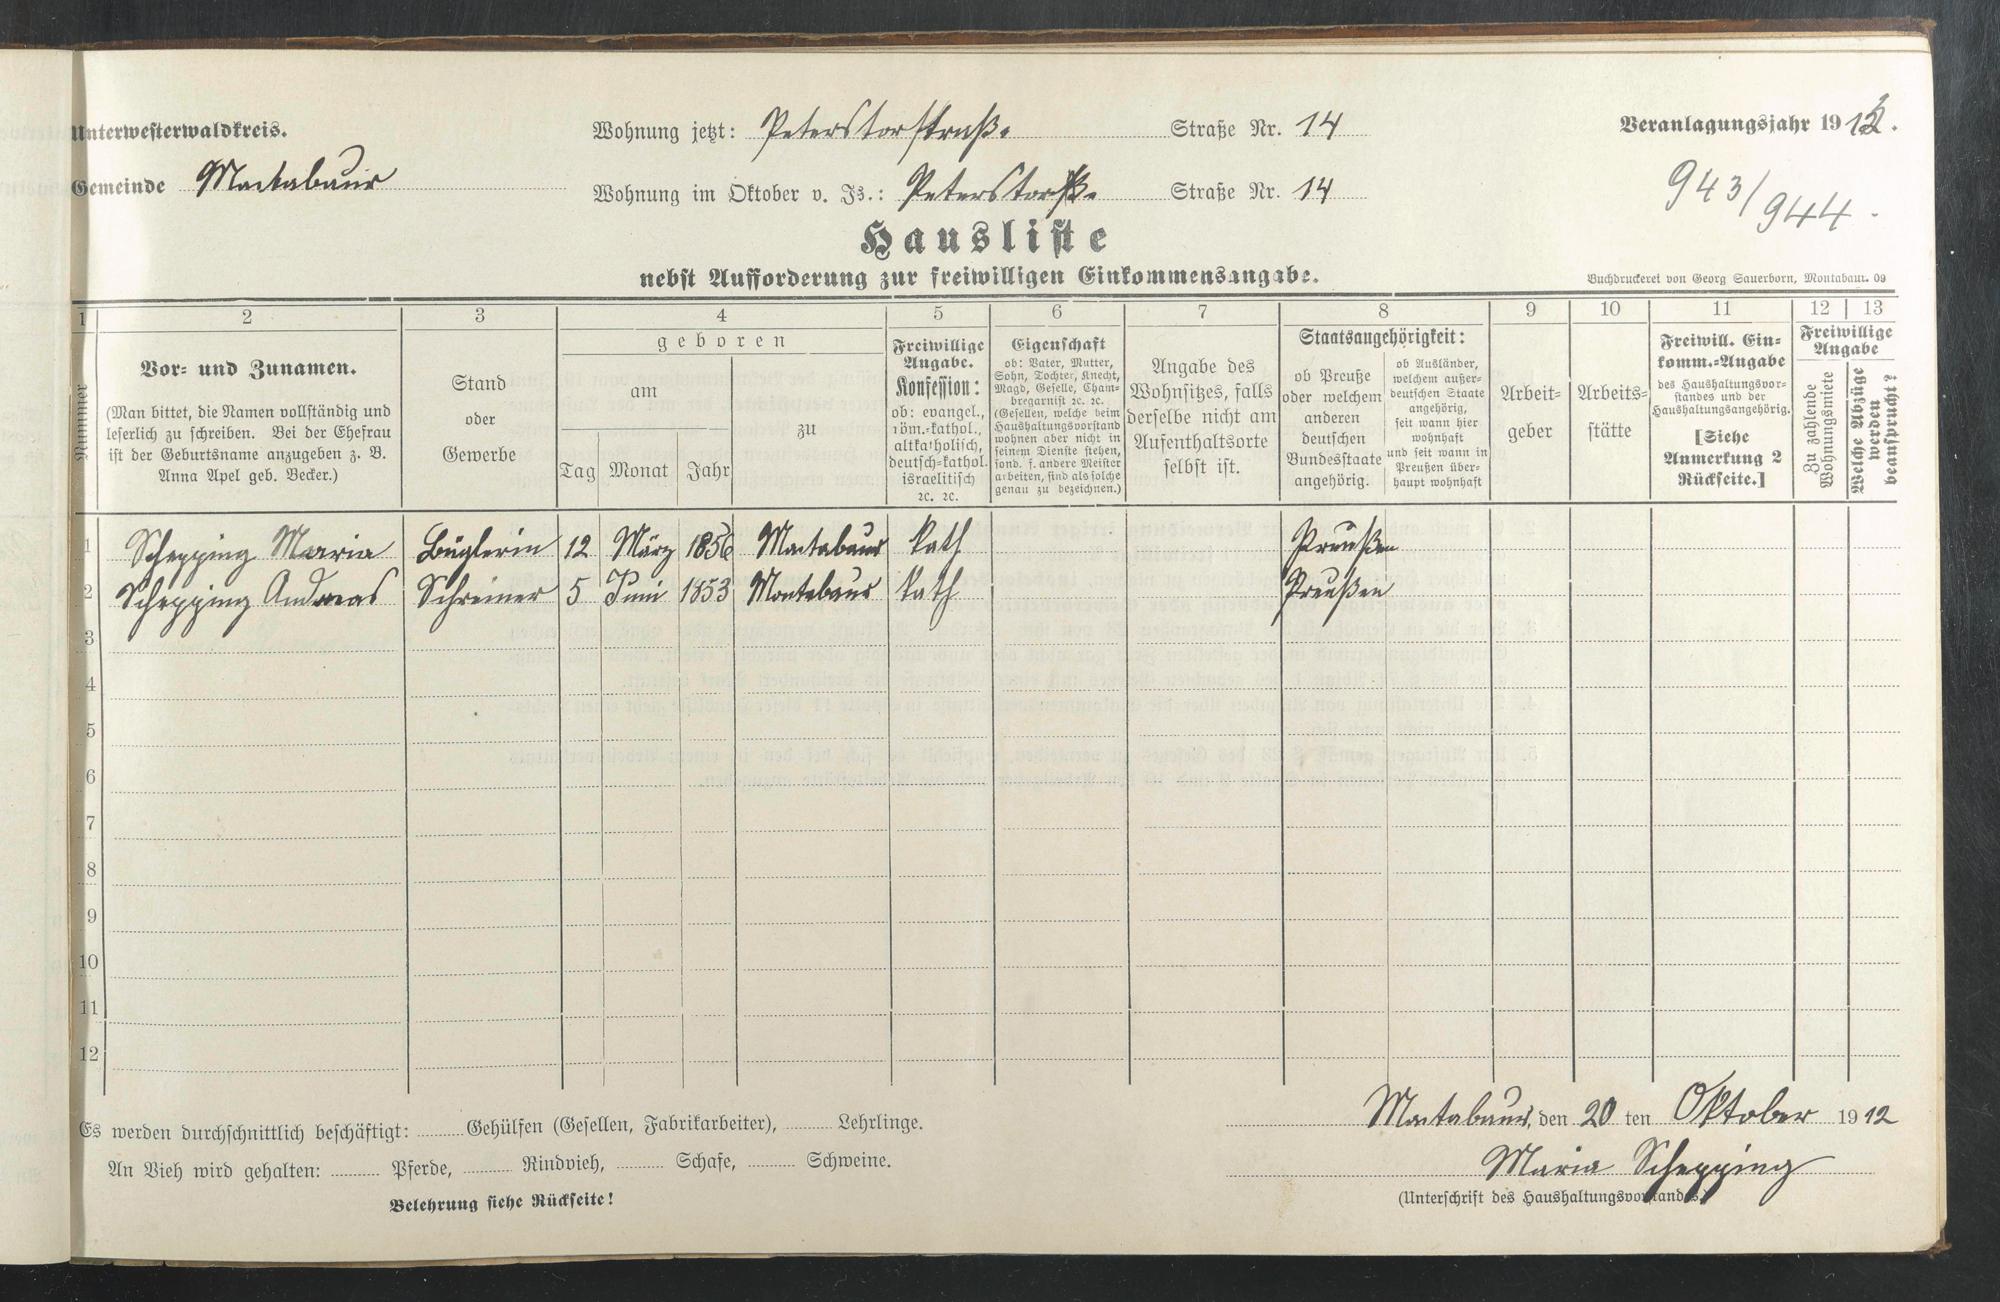 Unterwesterwaldkreis.
Wohnung jetzt: Peterstorstraße Straße Nr. 14
Veranlagungsjahr 1913.
Gemeinde Montabaur
Wohnung im Oktober v. Js.: Peterstorstr. Straße Nr. 14
943/944.
Hausliste
nebst Aufforderung zur freiwilligen Einkommensangabe.
Buchdruckerei von Georg Sauerborn, Montabaur. 09
1 2 3 4 5 6 7 8 9 10 11 12 13
Nummer
Vor- und Zunamen.
(Man bittet, die Namen vollständig und
leserlich zu schreiben. Bei der Ehefrau
ist der Geburtsname anzugeben z. B.
Anna Apel geb. Becker.)
Stand
oder
Gewerbe
geboren
am
Tag Monat Jahr
zu
Freiwillige
Angabe.
Konfession:
ob: evangel.,
röm.-kathol.,
altkatholisch,
deutsch-kathol.
israelitisch
2c. 2c.
Eigenschaft
ob: Vater, Mutter,
Sohn, Tochter, Knecht,
Magd, Geselle, Cham-
bregarnist 2c. 2c.
(Gesellen, welche beim
Haushaltungsvorstand
wohnen aber nicht in
seinem Dienste stehen,
sond. f. andere Meister
arbeiten, sind als solche
genau zu bezeichnen.)
Angabe des
Wohnsitzes, falls
derselbe nicht am
Aufenthaltsorte
selbst ist.
Staatsangehörigkeit:
ob Preuße
oder welchem
anderen
deutschen
Bundesstaate
angehörig.
ob Ausländer,
welchem außer-
deutschen Staate
angehörig,
seit wann hier
wohnhaft
und seit wann in
Preußen über-
haupt wohnhaft
Arbeit-
geber
Arbeits-
stätte
Freiwill. Ein-
komm.-Angabe
des Haushaltungsvor-
standes und der
Haushaltungsangehörig.
[Siehe
Anmerkung 2
Rückseite.]
Freiwillige
Angabe
Zu zahlende
Wohnungsmiete
Welche Abzüge
werden
beansprucht?
1 Schepping Maria Büglerin 12 März 1856 Montabaur kath Preußen
2 Schepping Andreas Schreiner 5 Juni 1853 Montabaur kath Preußen
3
4
5
6
7
8
9
10
11
12
Es werden durchschnittlich beschäftigt: Gehülfen (Gesellen, Fabrikarbeiter), Lehrlinge.
Montabaur, den 20 ten Oktober 1912
An Vieh wird gehalten: Pferde, Rindvieh, Schafe, Schweine.
Maria Schepping
Belehrung siehe Rückseite!
(Unterschrift des Haushaltungsvorstandes.)